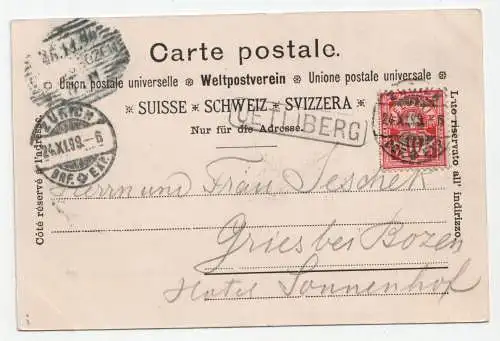 Carte postale.
Union postale universelle ※ Weltpostverein ※ Unione postale universale
※ SUISSE ※ SCHWEIZ ※ SVIZZERA ※
Nur für die Adresse.
UETLIBERG
ZÜRICH
24.XI.99.–6
BRF. EXP.
Côté réservé à l'adresse.
Lato riservato all' indirizzo.
Herrn und Frau Jeschek
Gries bei Bozen
Hotel Sonnenhof